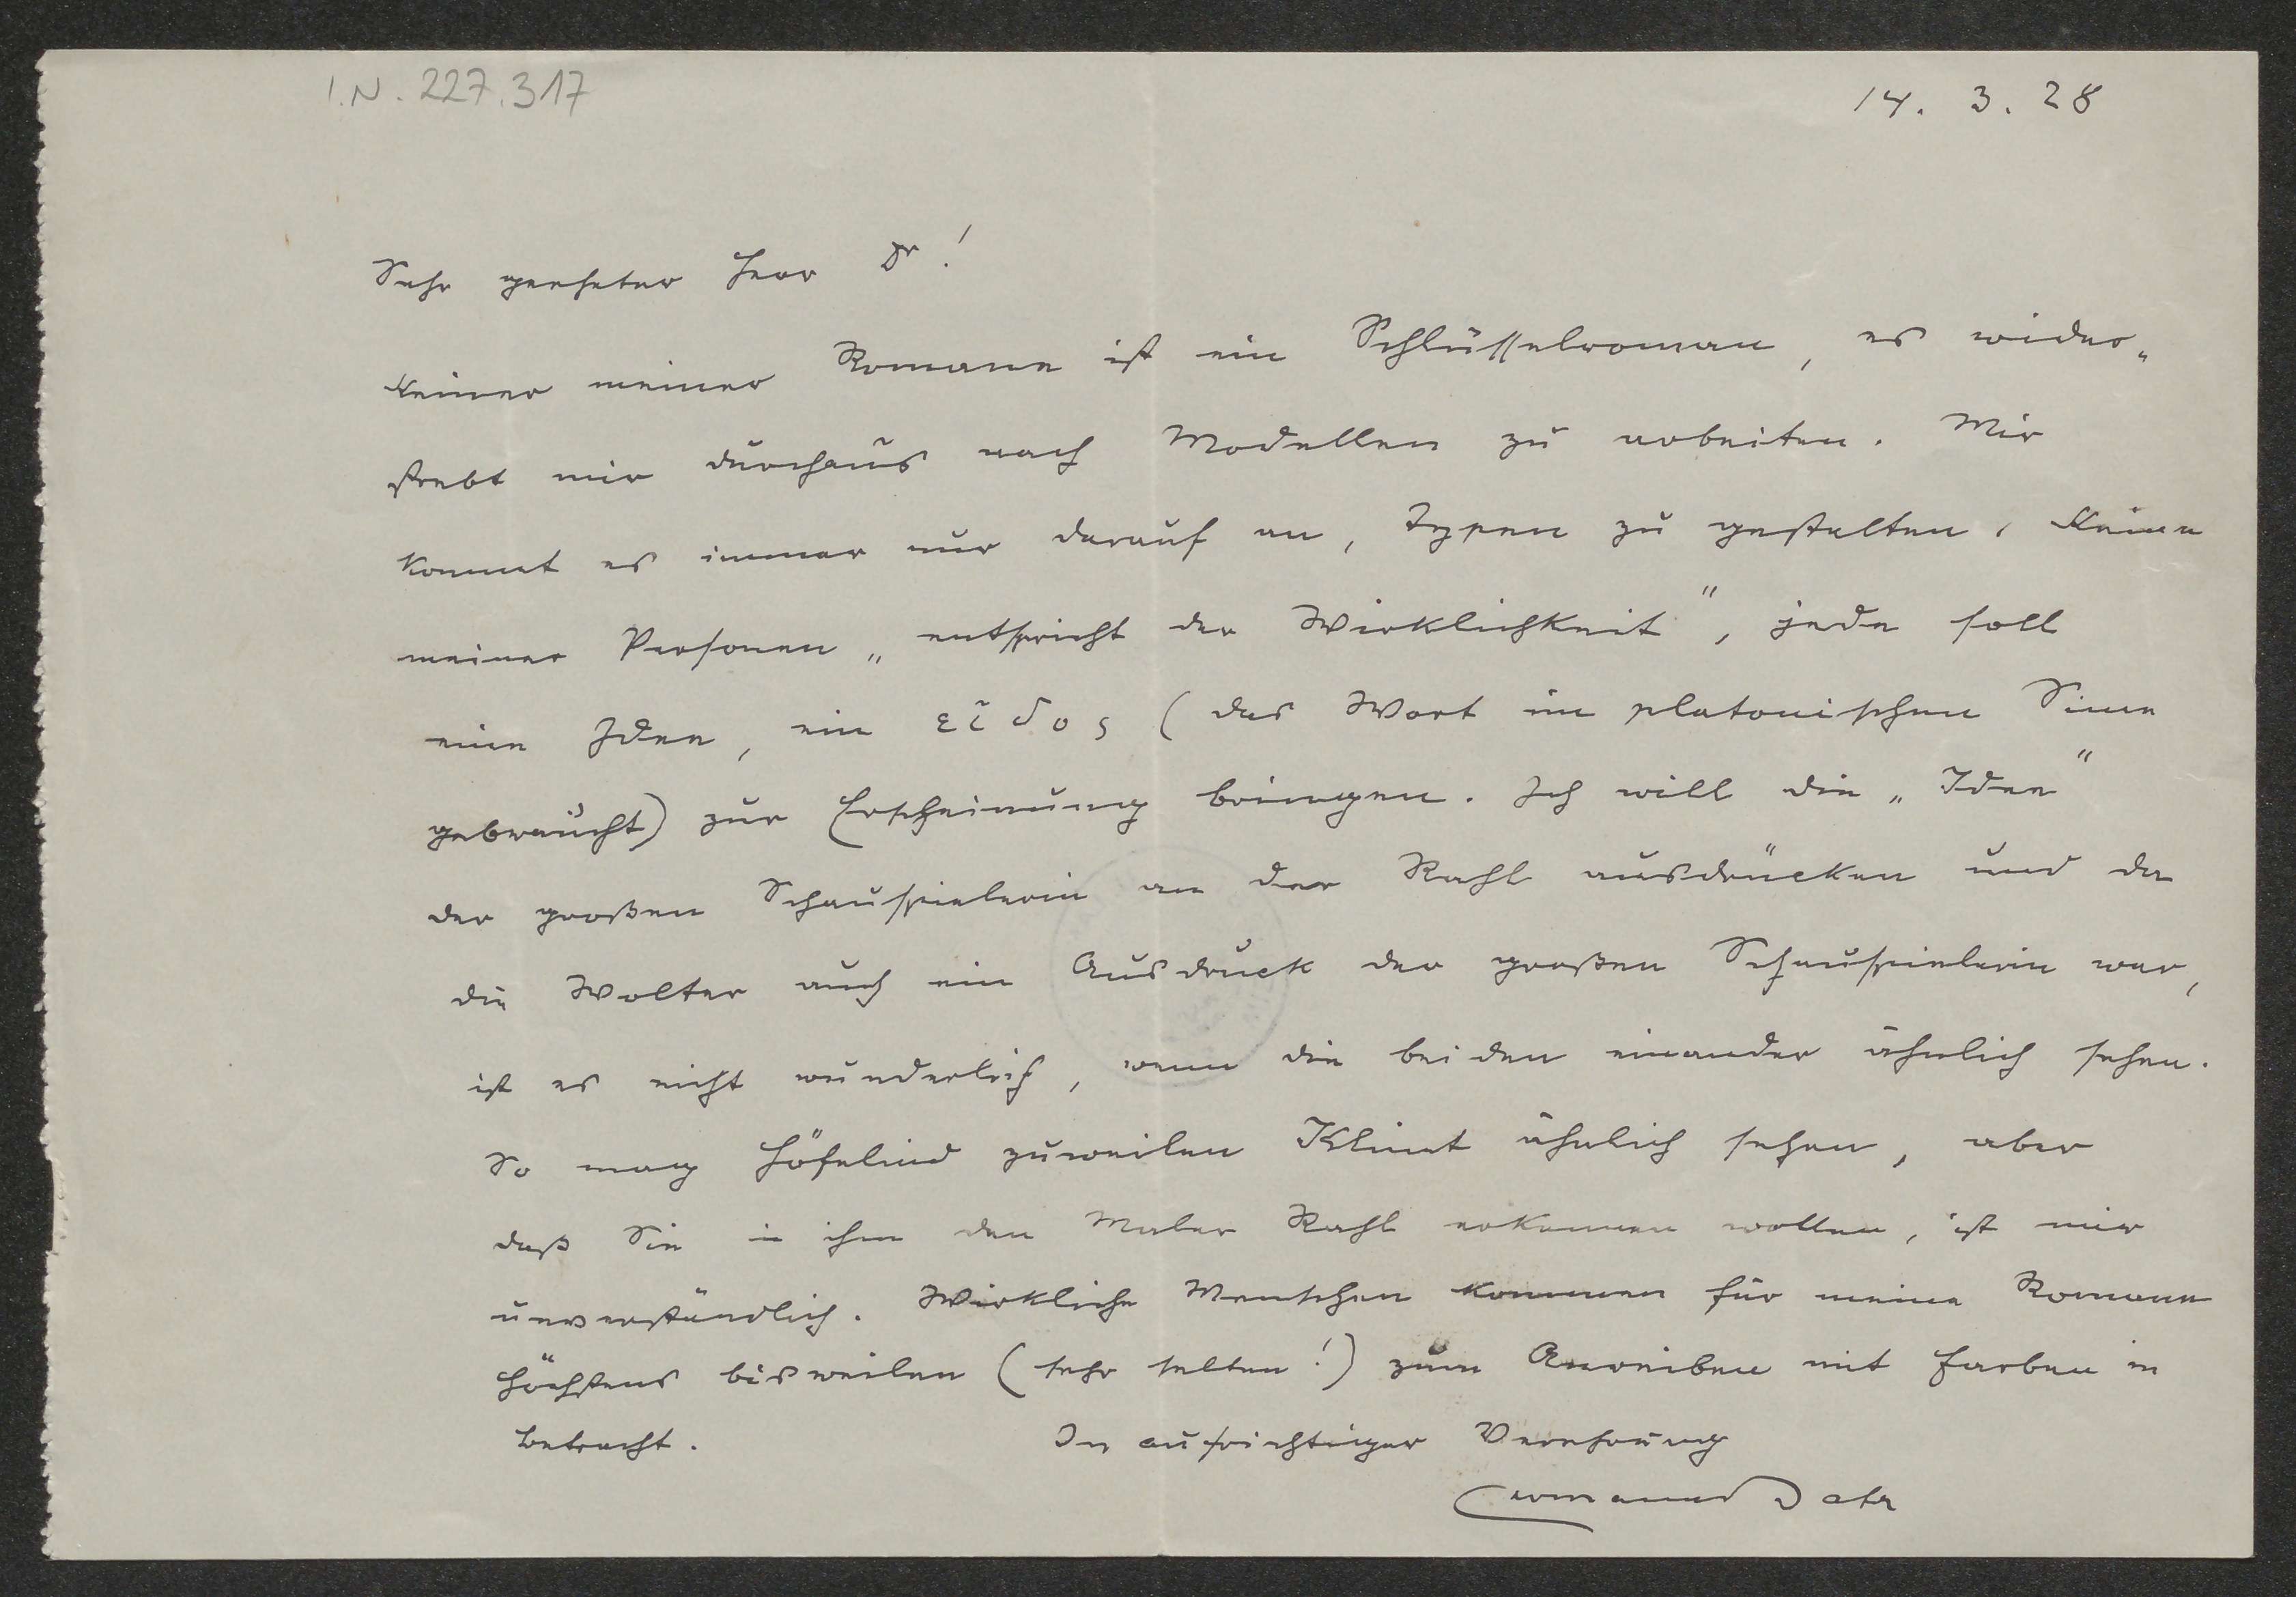 I.N. 227.317
14. 3. 28
Sehr geehrter Herr Dr!
Keiner meiner Romane ist ein Schlüsselroman, es wider-
strebt mir durchaus nach Modellen zu arbeiten. Mir
kommt es immer nur darauf an, Typen zu gestalten, keine
meiner Personen „entspricht der Wirklichkeit", jede soll
eine Idee, ein εἶδος (das Wort im platonischen Sinne
gebraucht) zur Erscheinung bringen. Ich will die „Idee"
der großen Schauspielerin an der Rahl ausdrücken und da
die Wolter auch ein Ausdruck der großen Schauspielerin war,
ist es nicht wunderlich, wenn die beiden einander ähnlich sehen.
So mag Höfelind zuweilen Klimt ähnlich sehen, aber
daß Sie in ihm den Maler Rahl erkennen wollen, ist mir
unverständlich. Wirkliche Menschen kommen für meine Romane
höchstens bisweilen (sehr selten!) zum Anreiben mit Farben in
Betracht.
In aufrichtiger Verehrung
Hermann Bahr